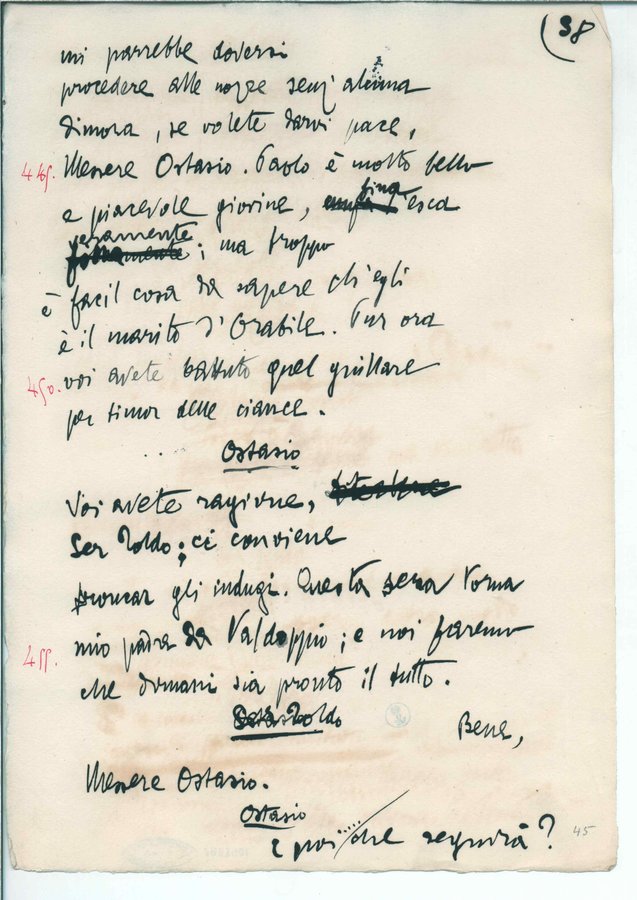 (38
mi parrebbe doversi
procedere alle nozze senz' alcuna
dimora, se volete darvi pace,
445. Messere Ostasio. Paolo è molto bello
e piacevole giovine, fina
l'esca
veramente; ma troppo
è facil cosa da sapere ch'egli
è il marito d'Orabile. Pur ora
450. voi avete battuto quel giullare
per timor delle ciance.
Ostasio
Voi avete ragione,
Ser Toldo; ci conviene
troncar gli indugi. Questa sera torna
455. mio padre da Valdoppio; e noi faremo
che domani sia pronto il tutto.
Ser Toldo
Bene,
Messere Ostasio.
Ostasio
E poi che seguirà?
45